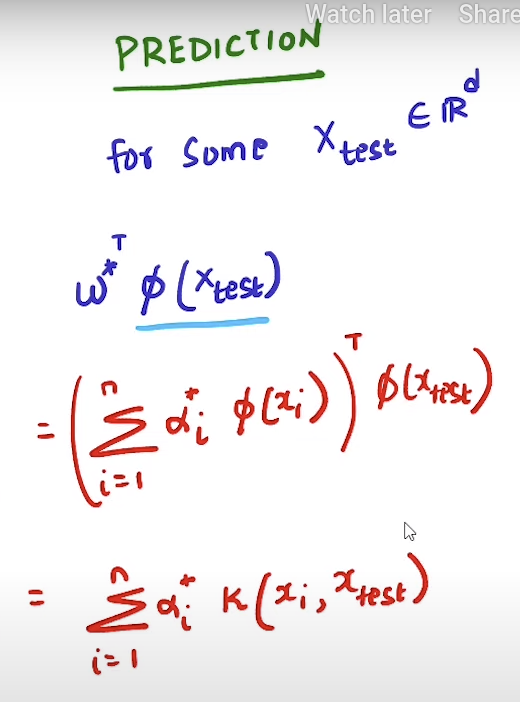 Watch later Share
PREDICTION
for some X_test ∈ ℝ^d
ω*^T ϕ(x_test)
= (∑_{i=1}^{n} α_i^* ϕ(x_i))^T ϕ(x_test)
= ∑_{i=1}^{n} α_i^* K(x_i, x_test)